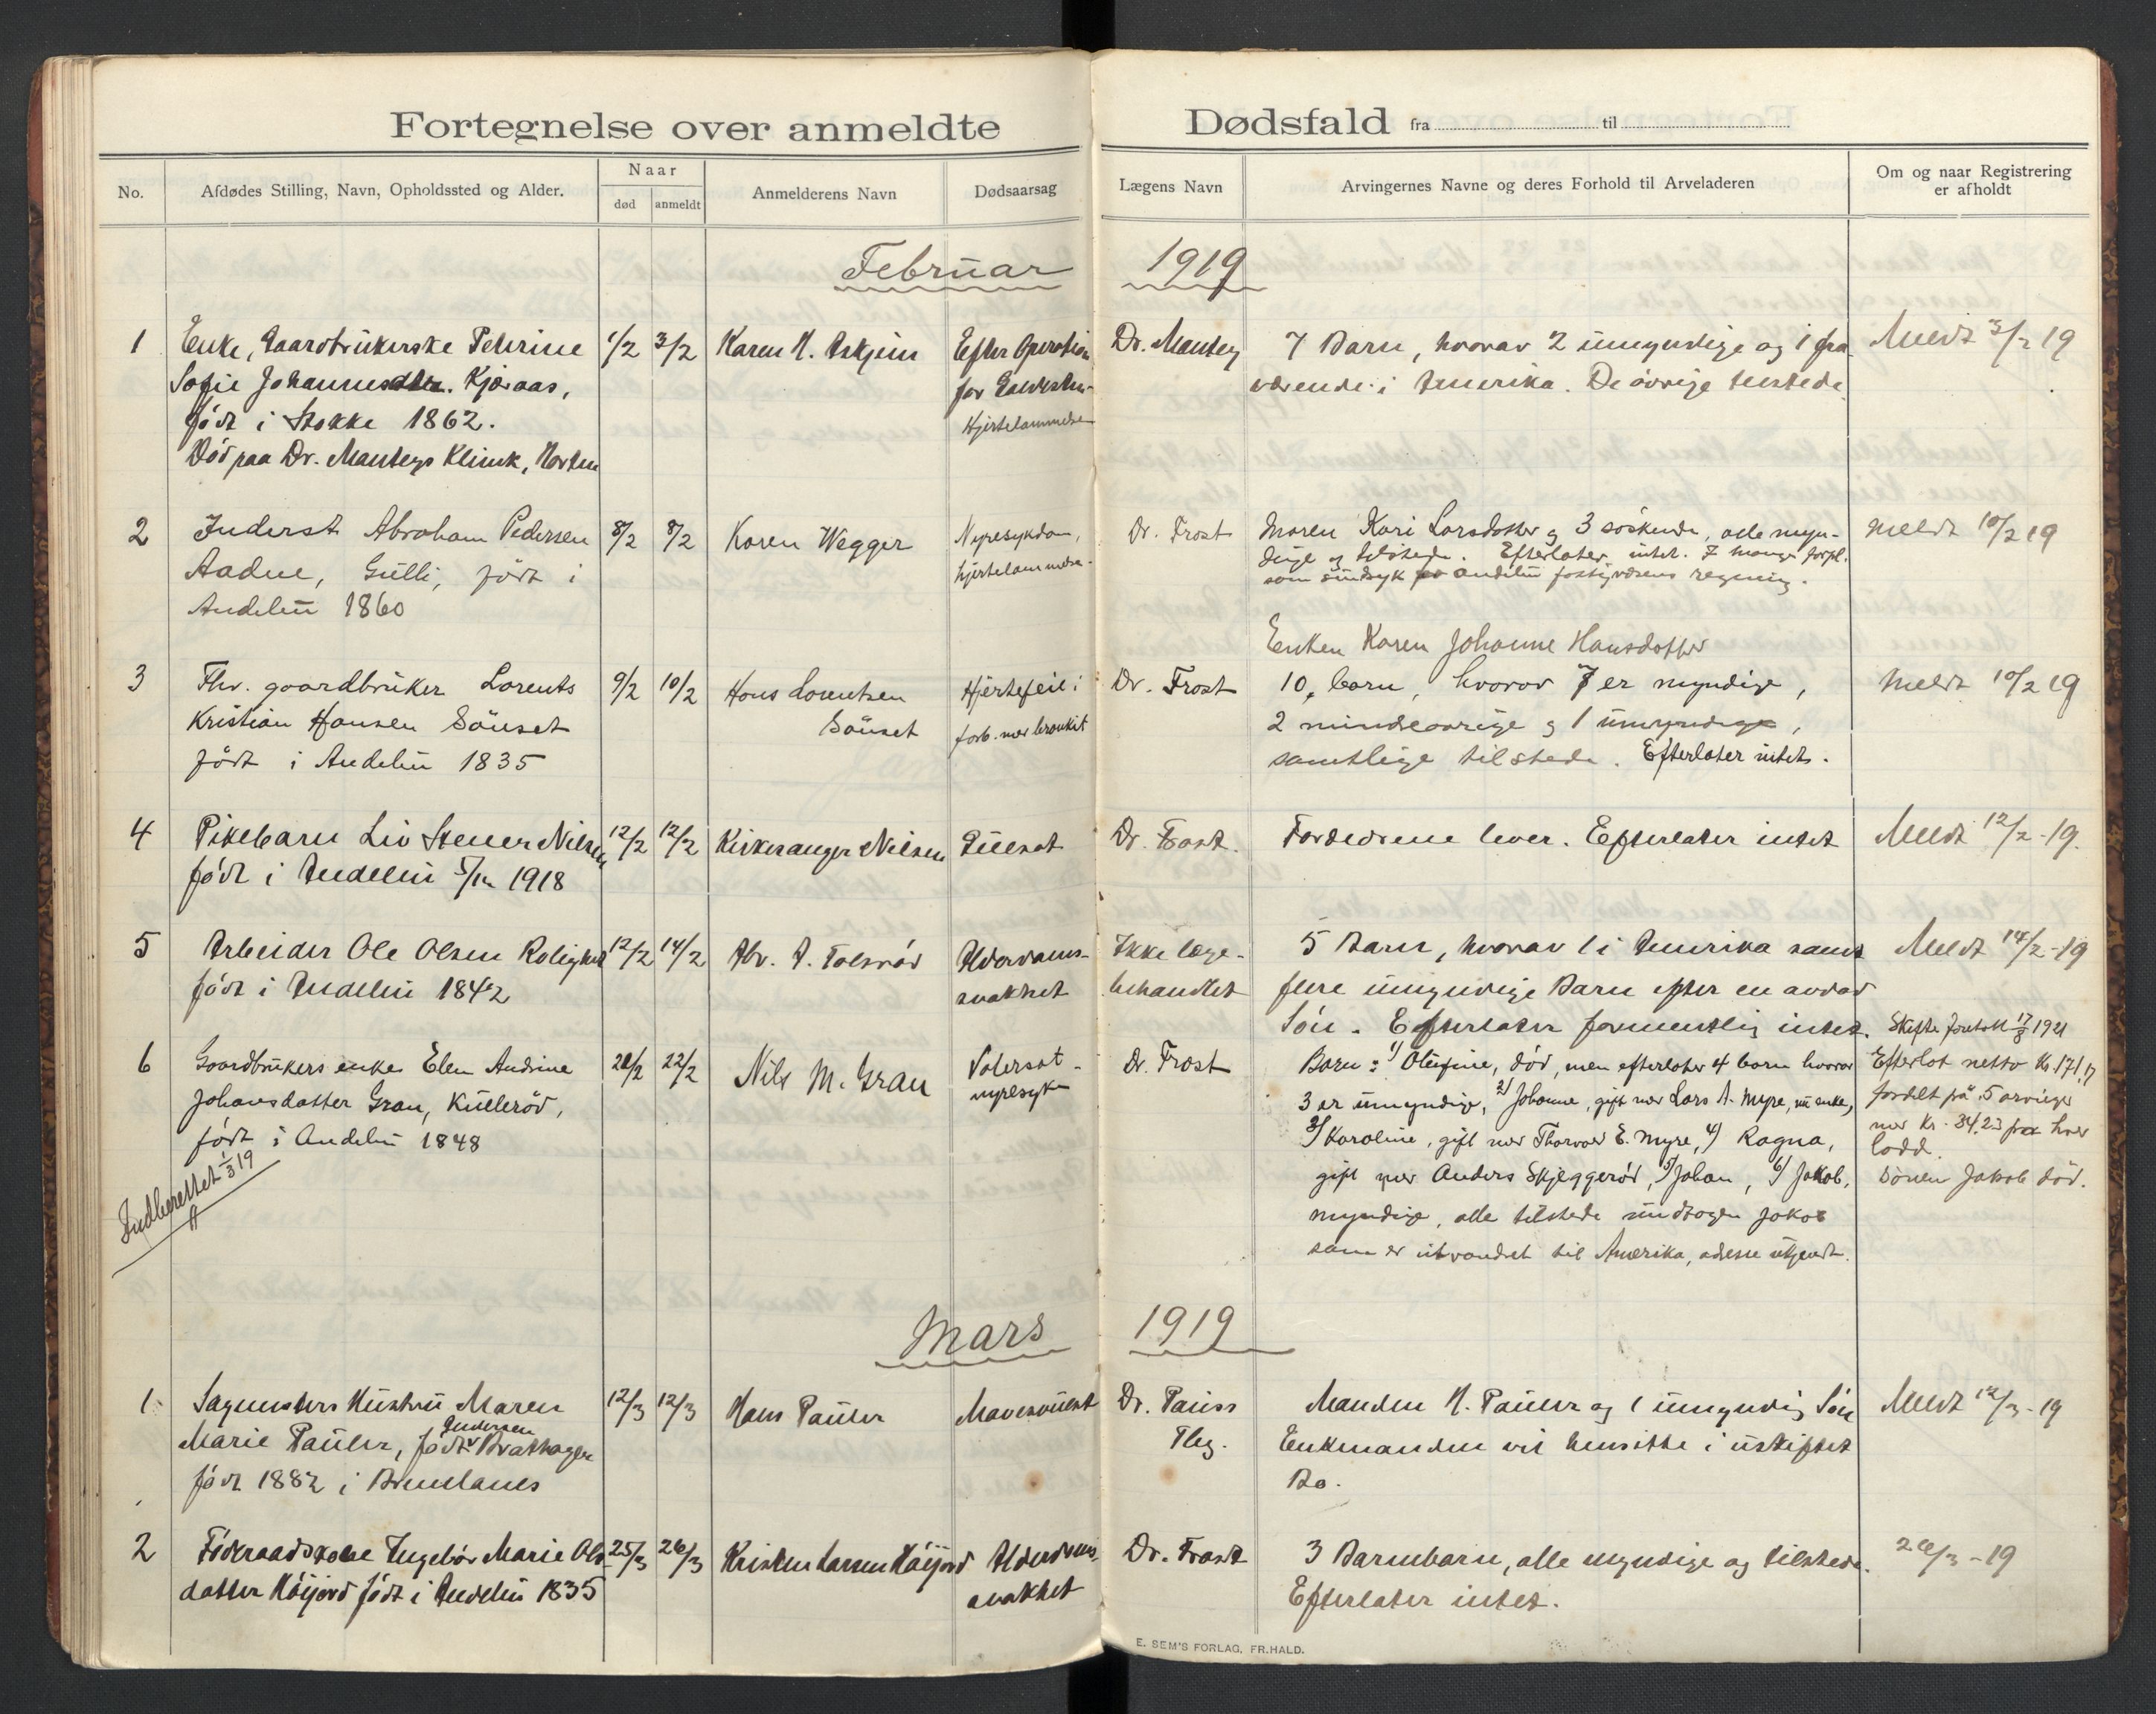 Fortegnelse over anmeldte Dødsfald fra til
No.
Afdødes Stilling, Navn, Opholdssted og Alder.
Naar
død anmeldt
Anmelderens Navn
Dødsaarsag
Lægens Navn
Arvingernes Navne og deres Forhold til Arveladeren
Om og naar Registrering
er afholdt
Februar 1919
1 Enke, Gaardbrukerske Petrine 1/2 3/2 Karen H. Askjem Efter Operation Dr. Mantey 7 Barn, hvorav 2 umyndige og 1 fra Meldt 3/2 19
Sofie Johannesdtr. Kjæraas, for værende i Amerika. De øvrige tilstede
født i Stokke 1862. Hjertelammelse
Død paa Dr. Manteys Klinik, Horten
2 Inderst Abraham Pedersen 8/2 8/2 Karen Wegger Nyresykdom, Dr. Frost Maren Kari Larsdotter og 3 søskende, alle myn- meldt 10/2 19
Aadne, Gulli, født i hjertelammelse. dige og tilstede. Efterlater intet. I mange forpl.
Andebu 1860 som sindsyk paa Andebu fattigvæsens regning.
Enken Karen Johanne Hansdotter
3 Fhv. gaardbruker Lorents 9/2 10/2 Hans Lorentsen Hjertefeil i Dr. Frost 10 barn, hvorav 7 er myndige, meldt 10/2 19
Kristian Hansen Sønset Sønset forb. med bronkit 2 mindreaarige og 1 umyndige,
født i Andebu 1835 samtlige tilstede. Efterlater intet.
4 Pikebarn Liv Stener Nilsen 12/2 12/2 Kirkesanger Nilsen Gulsot Dr. Frost. Foreldrene lever. Efterlater intet Meldt 12/2-19.
født i Andebu 1918
5 Arbeider Ole Olsen Rolighet 12/2 14/2 Abr. A. Tolsrød Alderdoms- Ikke læge- 5 Barn, hvorav 1 i Amerika samt Meldt 14/2-19
født i Andebu 1842 svakhet behandlet flere umyndige Barn efter en avdød
Søn. Efterlater formentlig intet. Skifte foretatt 17/3 1921
6 Gaardbrukers enke Elen Andrine 20/2 22/2 Nils M. Gran Dr. Frost Barn: 1) Olefine, død, men efterlater 4 barn hvorav Efterlot netto Kr. 171,17
Johansdatter Gran, Kullerød, nyresyk 3 er umyndige, 2) Johanne, gift med Lars A. Myre, nu enke, fordelt på 5 arvinger
født i Andebu 1848 3) Karoline, gift med Thorvald E. Myre, 4) Ragna, med Kr. 34,23 på hver
lodd.
gift med Anders Skjeggerød, 5) Johan, 6) Jakob, Sønnen Jakob død.
Indberettet 1/3 19
myndige, alle tilstede undtagen Jakob
som er utvandret til Amerika, adresse ukjendt.
Mars 1919
1 Sagmesters Hustru Maren 12/3 12/3 Hans Pauler Mavesvulst Dr. Pauss Manden H. Pauler og 1 umyndig Søn Meldt 12/3-19
Andersen
Marie Pauler, født Brathagen Tbg. Enkemanden vil hensitte i uskiftet
født 1882 i Brunlanes Bo.
2 Føderaadskone Ingebør Marie Ols- 25/3 26/3 Kristen Larsen Høijord Alderdoms- Dr. Frost 3 Barnebarn, alle myndige og tilstede. 26/3-19
datter Høijord født i Andebu 1835 svakhet Efterlater intet.
E. SEM'S FORLAG, FR.HALD.